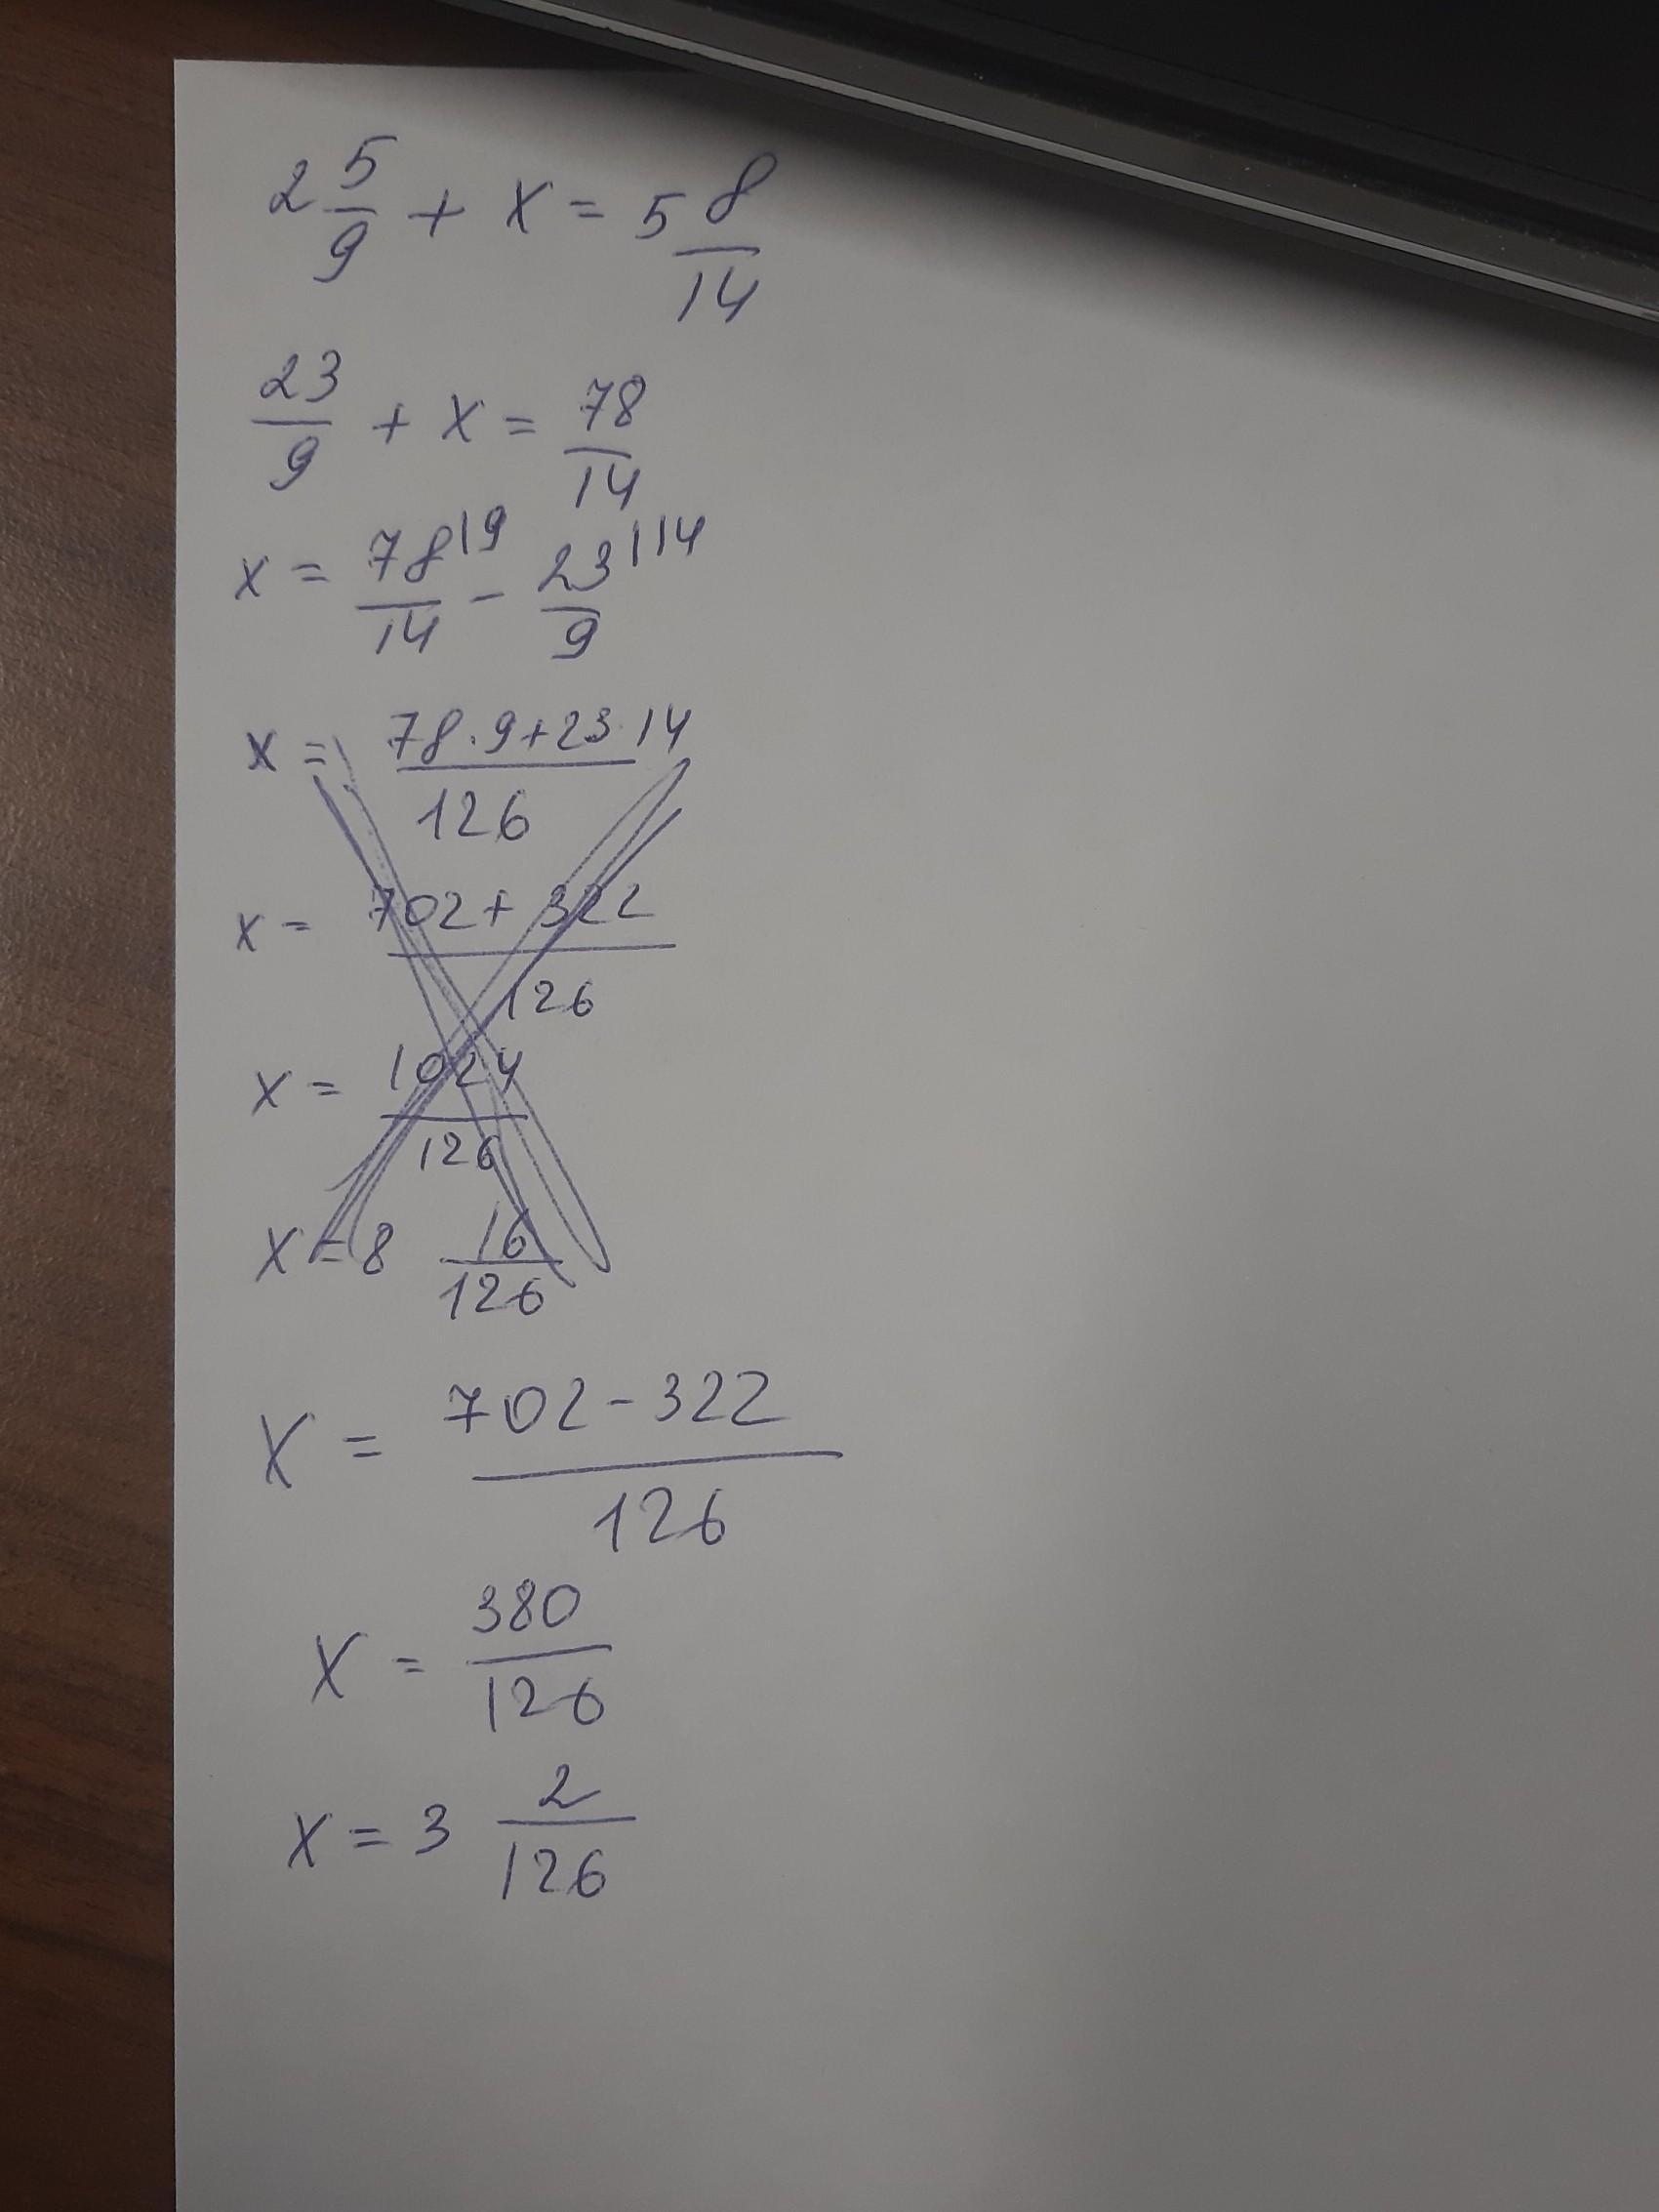 2 5/9 + x = 5 8/14
23/9 + x = 78/14
x = 78|9/14 - 23|14/9
x = 78·9+23·14/126
x = 702+322/126
x = 1024/126
x = 8 16/126
x = 702-322/126
x = 380/126
x = 3 2/126